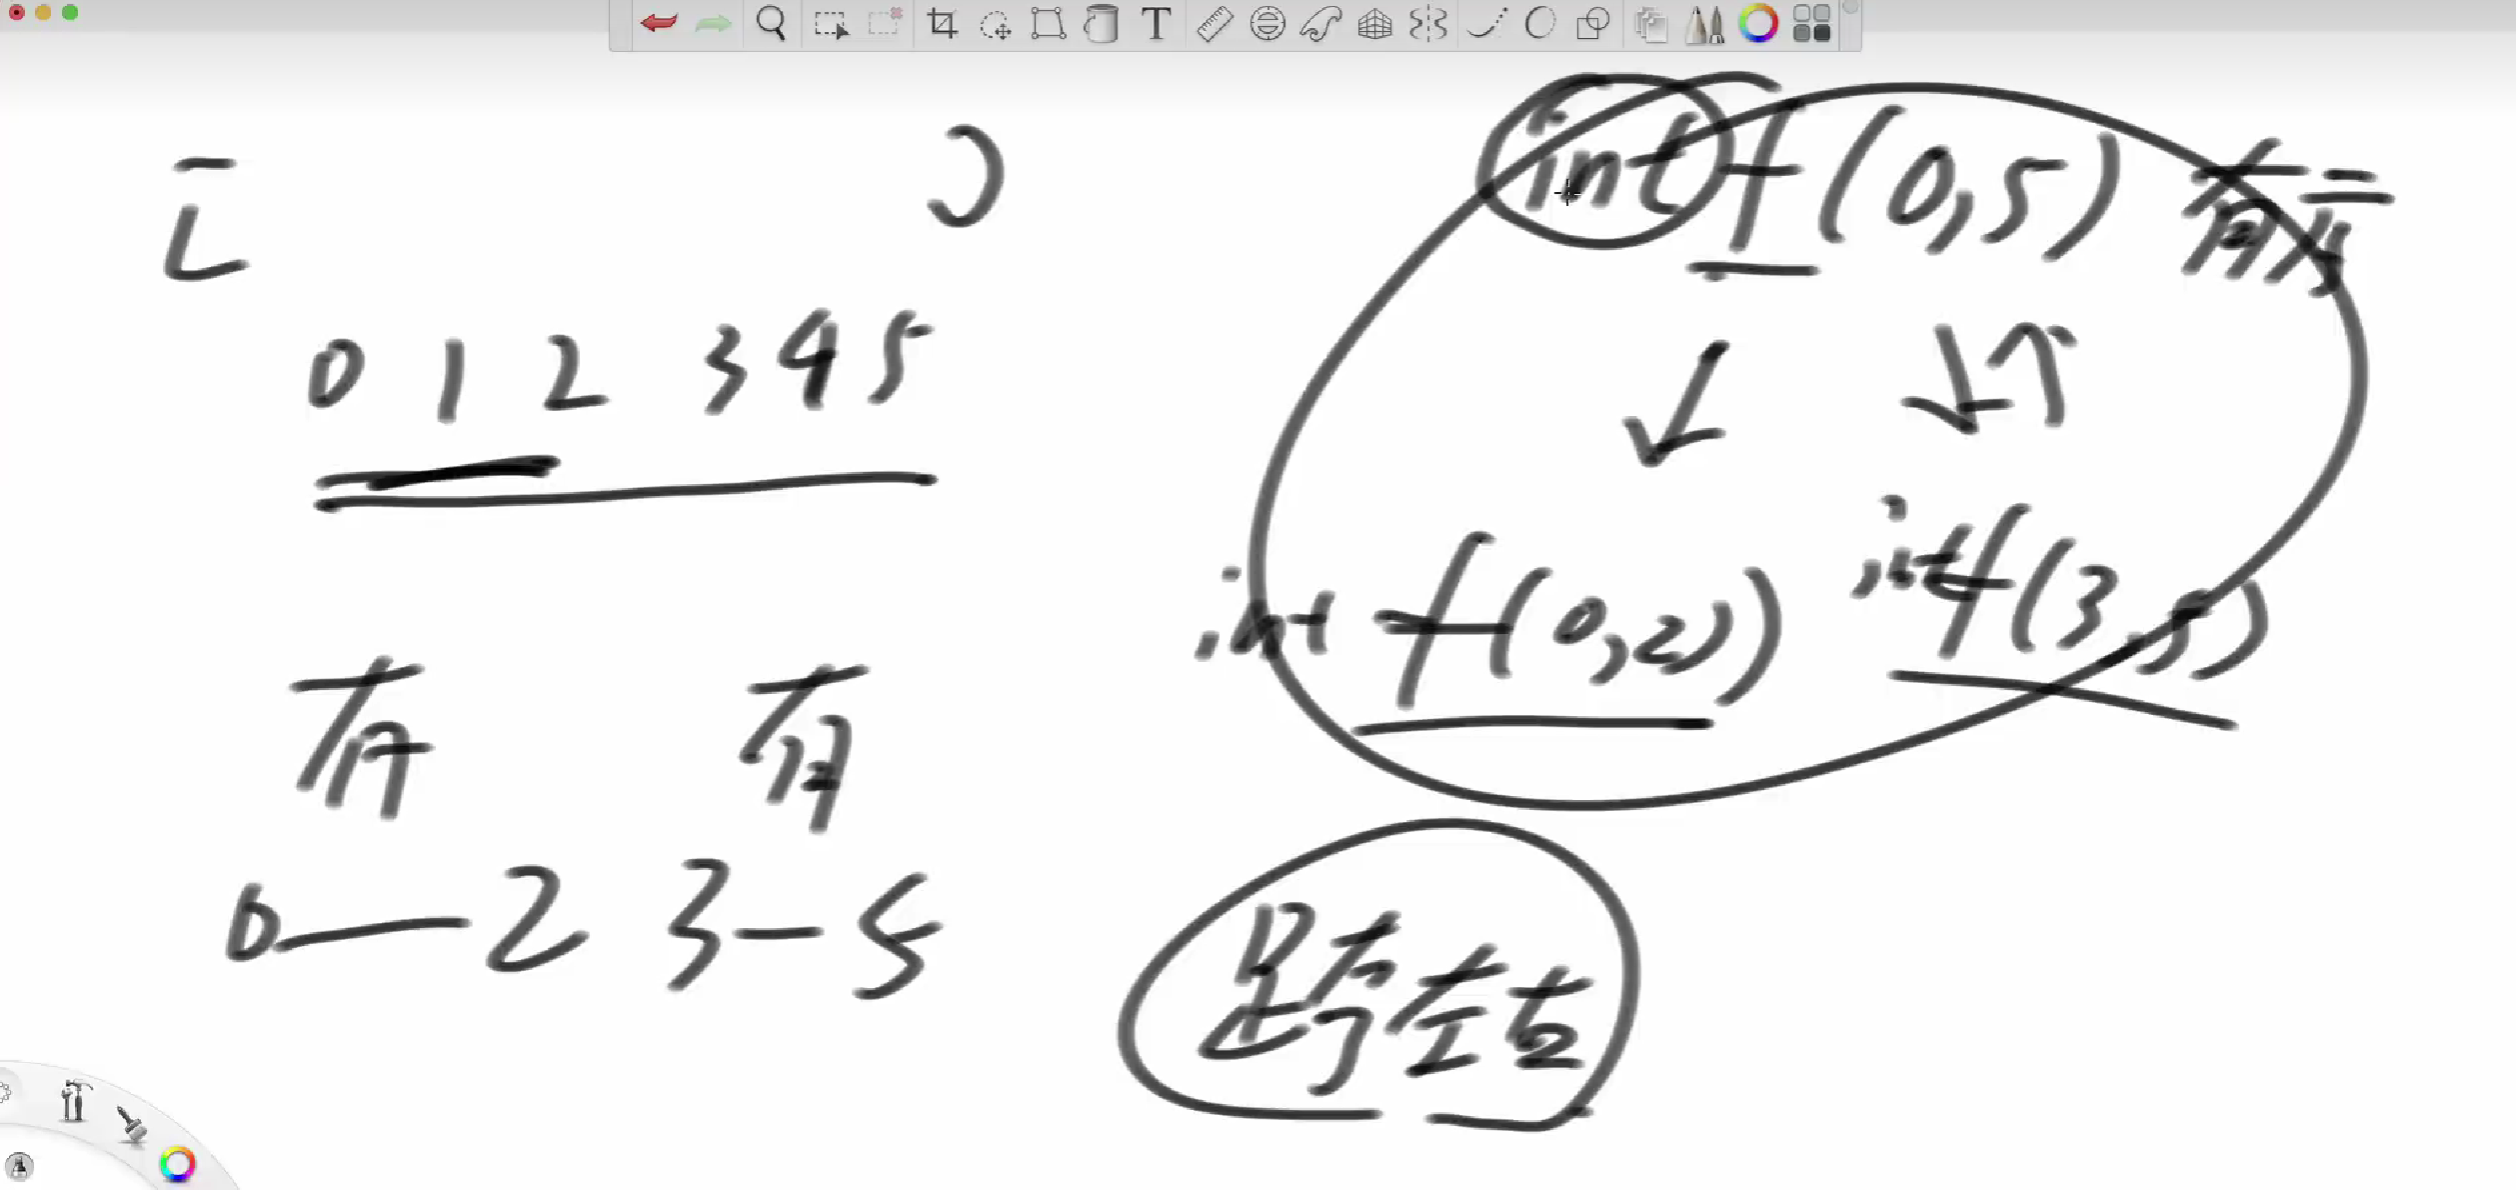 [ ]
0 1 2 3 4 5
有 有
0—2 3—5
int f(0,5) 有序
int f(0,2) int f(3,5)
跨左右